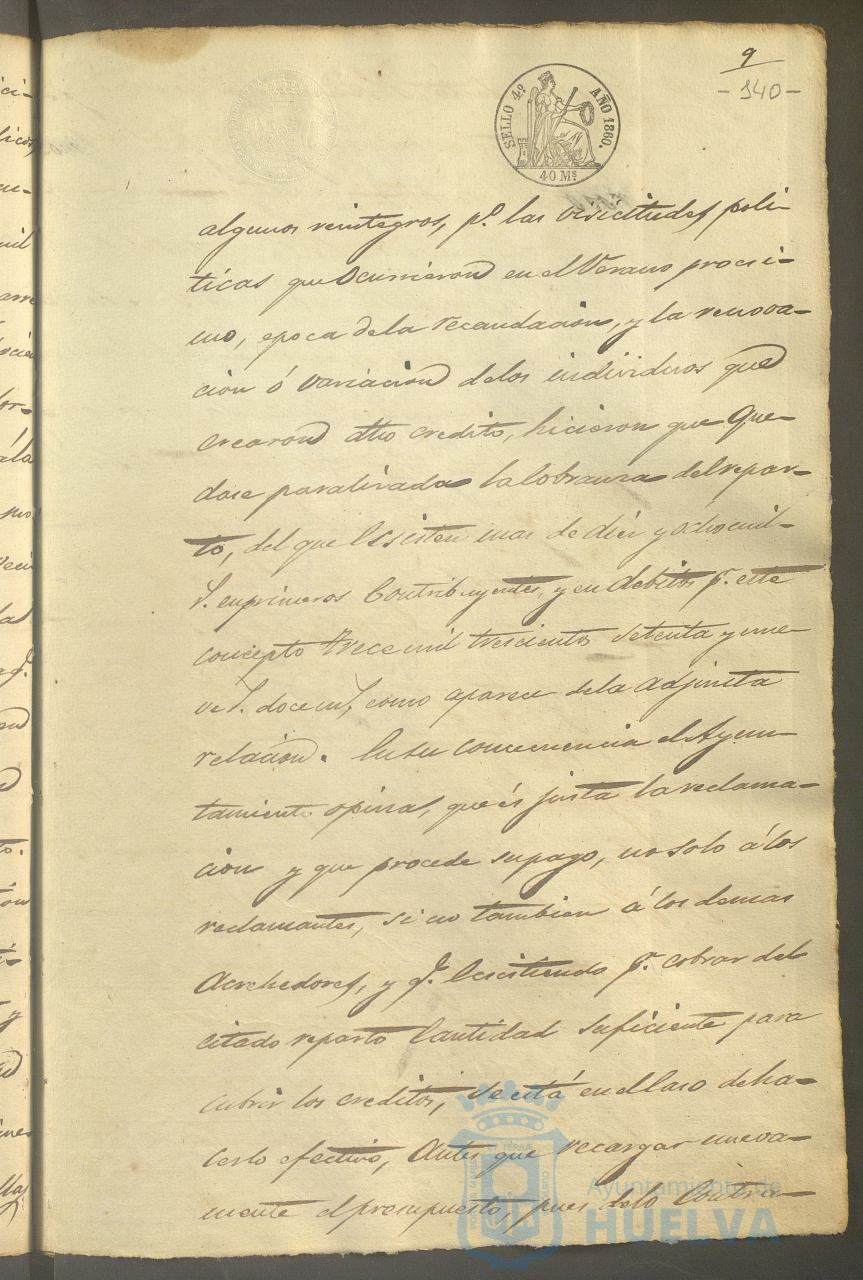 9
- 140 -
SELLO 4º AÑO 1860.
40 Ms.
algunos reintegros, pº. las visicitudes poli-
ticas que Ocurrieron en el Verano procsi-
mo, epoca de la recaudacion, y la renova-
cion ó variacion de los individuos que
crearon dho credito, hicieron que Que-
dase paralizada la Cobranza del repar-
to, del que Ecsisten mas de diez y ocho mil
r. en primeros Contribuyentes, y en debitos pr. este
concepto trece mil trescientos setenta y nue-
ve r. doce ms, como aparece de la adjunta
relacion. En su concecuencia el Ayun-
tamiento opina, que és justa la reclama-
cion y que procede su pago, no solo á los
reclamantes, si no tambien á los demas
Acrehedores, y qe. Ecsistiendo pr. cobrar del
citado reparto Cantidad suficiente para
cubrir los creditos, se está en el Caso de ha-
cerlo efectivo, Antes que recargar nueva-
mente el presupuesto, pues de lo Contra-
Ayuntamiento de
HUELVA